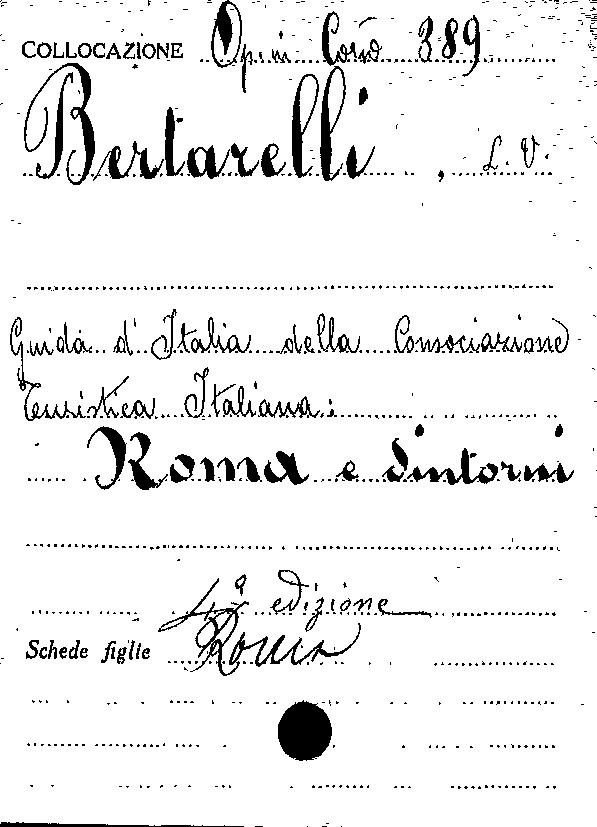 COLLOCAZIONE Opini Cons 389
Bertarelli, L. V.
Guida d'Italia della Consociazione
Turistica Italiana:
Roma e dintorni
4ª edizione
Schede figlie Roma